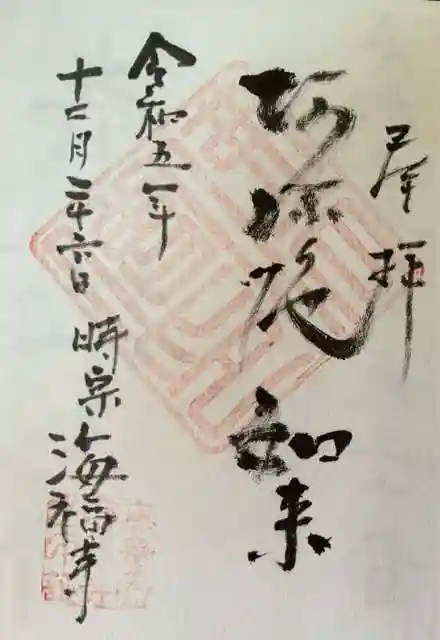 奉拝
阿弥陀如来
令和五年
十二月二十六日 時宗 海福寺